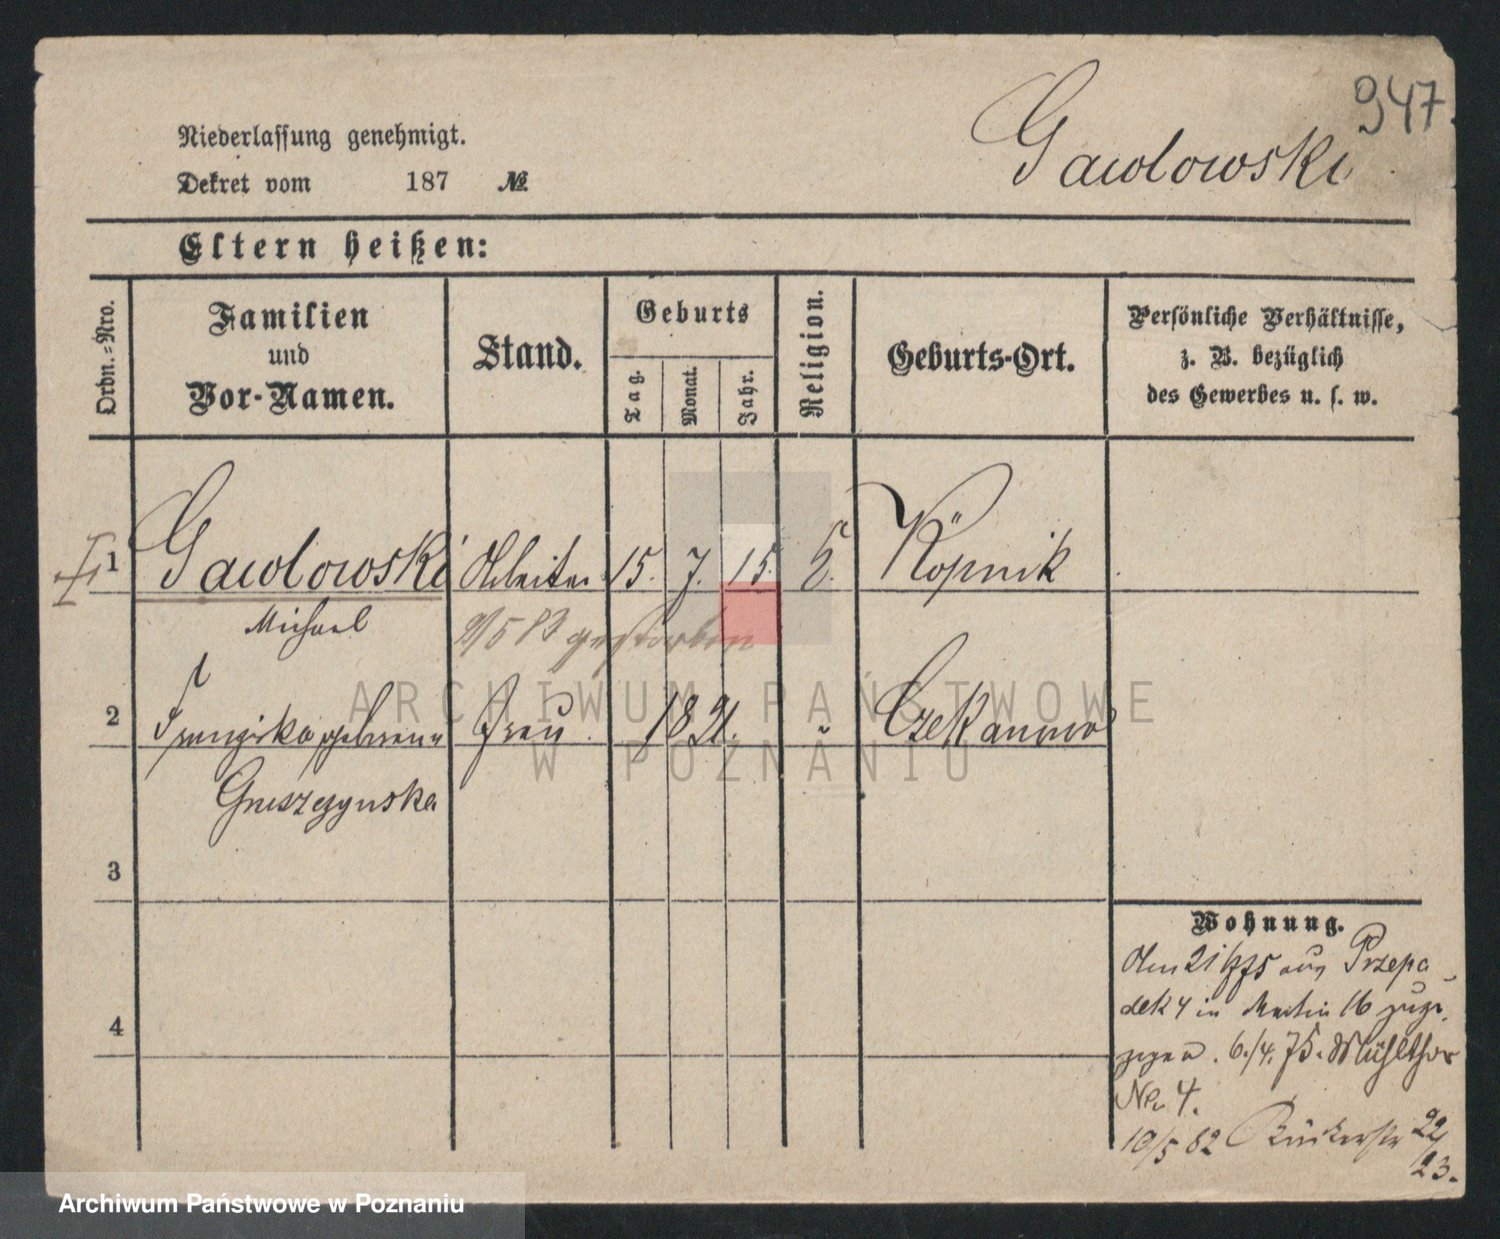 947.
Gawlowski
Niederlassung genehmigt.
Dekret vom 187 №
Eltern heißen:
Ordn.-Nro.
Familien
und
Vor-Namen.
Stand.
Geburts
Tag.
Monat.
Jahr.
Religion.
Geburts-Ort.
Persönliche Verhältnisse,
z. B. bezüglich
des Gewerbes u. s. w.
1 Gawlowski Arbeiter 15. 7. 15. Köpnik
Michael
gestorben
2 Franziska geborene Frau 18 21. Czekanowo
Gruszczynska
3
4
Wohnung.
Am 21 aus Przepa-
dek 4 in Martin 16 zuge-
zogen. 6./4. 75. Mühlthor
No. 4.
10/5 82 22/
23.
ARCHIWUM PAŃSTWOWE
W POZNANIU
Archiwum Państwowe w Poznaniu